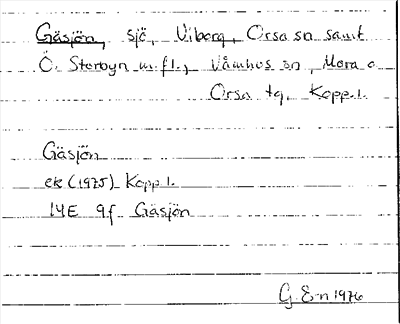 Gäsjön, sjö, Viborg, Orsa sn samt
Ö. Storbyn m.fl., Våmhus sn, Mora o
Orsa tg, Kopp.l.
Gäsjön
ek (1975) Kopp l.
14E 9f Gäsjön
G. E-n 1976